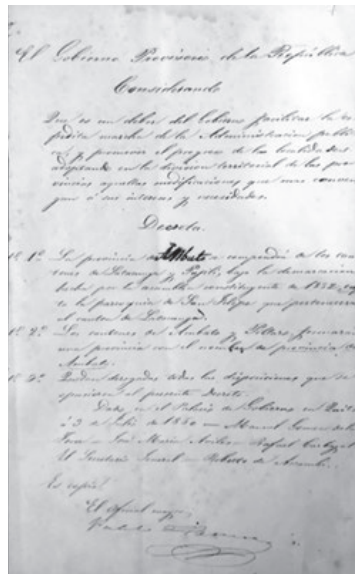 El Gobierno Provisorio de la República
Considerando
Que es un deber del Gobierno facilitar la es
pedita marcha de la Administracion públi
ca, y promover el progreso de las localidades
adoptando en la division territorial de las pro
vincias aquellas modificaciones que mas conven
gan á sus intereses y necesidades.
Decreta.
1º La provincia de Ambato compondrá de los can
tones de Latacunga y Pujilí, bajo la demarcacion
hecha por la asamblea constituyente de 1852,
la parroquia de San Felipe que pertenecerá
al canton de Latacunga.
2º Los cantones de Ambato y Píllaro formarán
una provincia con el nombre de provincia de
Ambato.
3º Quedan derogadas todas las disposiciones que se
opusieren al presente decreto.
Dado, en el Palacio de Gobierno en Quito
á 3 de Julio de 1860 – Manuel Gomez de la
Torre – José María Avilés – Rafael Carbajal
El Secretario Jeneral – Roberto de Ascasubi.
Es copia.
El oficial mayor